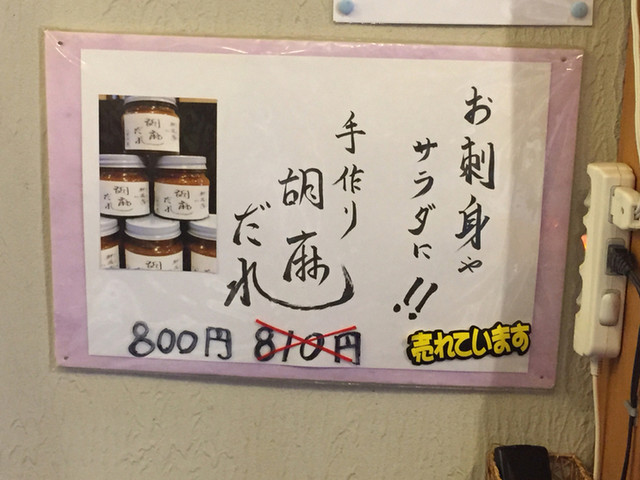 お刺身や
サラダに!!
手作り
胡麻
だれ
800円
810円
売れています
胡麻
だれ
胡麻
だれ
胡麻
だれ